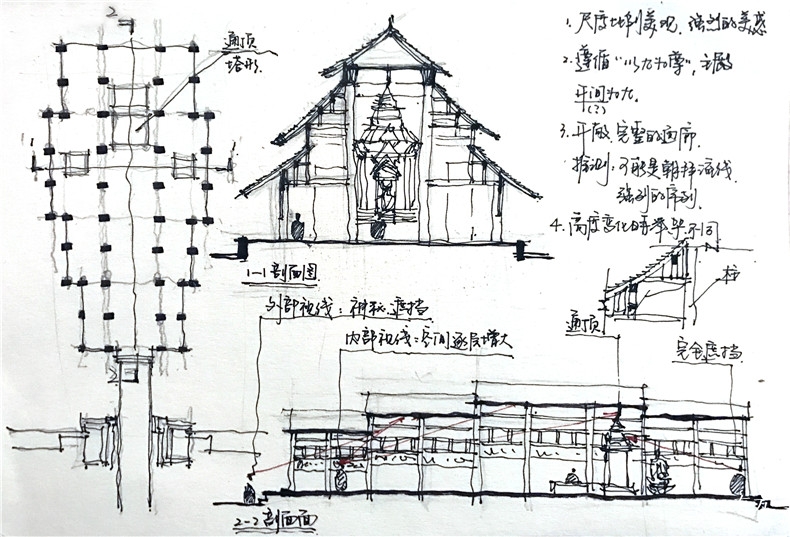 2
通顶
塔形.
1
1
2
1-1剖面图
1. 尺度比例美观, 强烈的美感
2. 遵循“以九为尊”, 主殿
开间为九.
(?)
3. 开敞. 完整的画廊.
推测: 可能是朝拜流线
强烈的序列.
4. 高度变化时举架不同
柱
外部视线: 神秘. 遮挡
内部视线: 空间逐层增大
通顶
完全遮挡
2-2剖面面